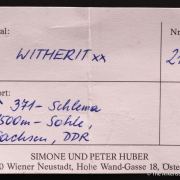 al:
Nr
WITHERIT xx
2
ort:
371-Schlema
500m-Sohle,
achsen, DDR
SIMONE UND PETER HUBER
0 Wiener Neustadt, Hohe Wand-Gasse 18, Öste